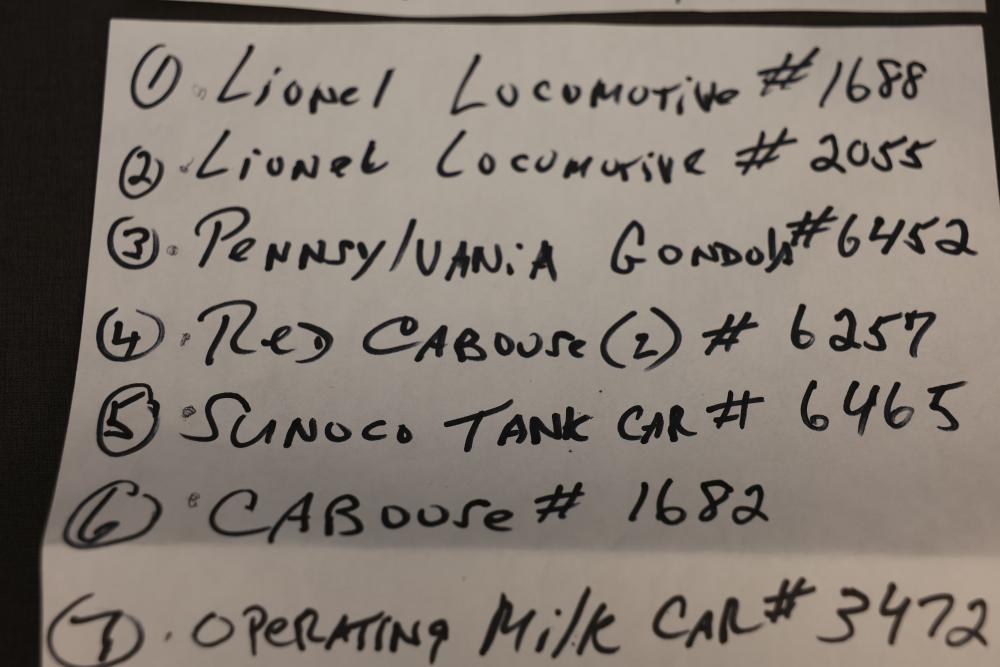 ① Lionel Locomotive # 1688
② Lionel Locomotive # 2055
③ Pennsylvania Gondola # 6452
④ Red Cabouse (2) # 6257
⑤ Sunoco Tank Car # 6465
⑥ Cabouse # 1682
⑦ Operating Milk Car # 3472